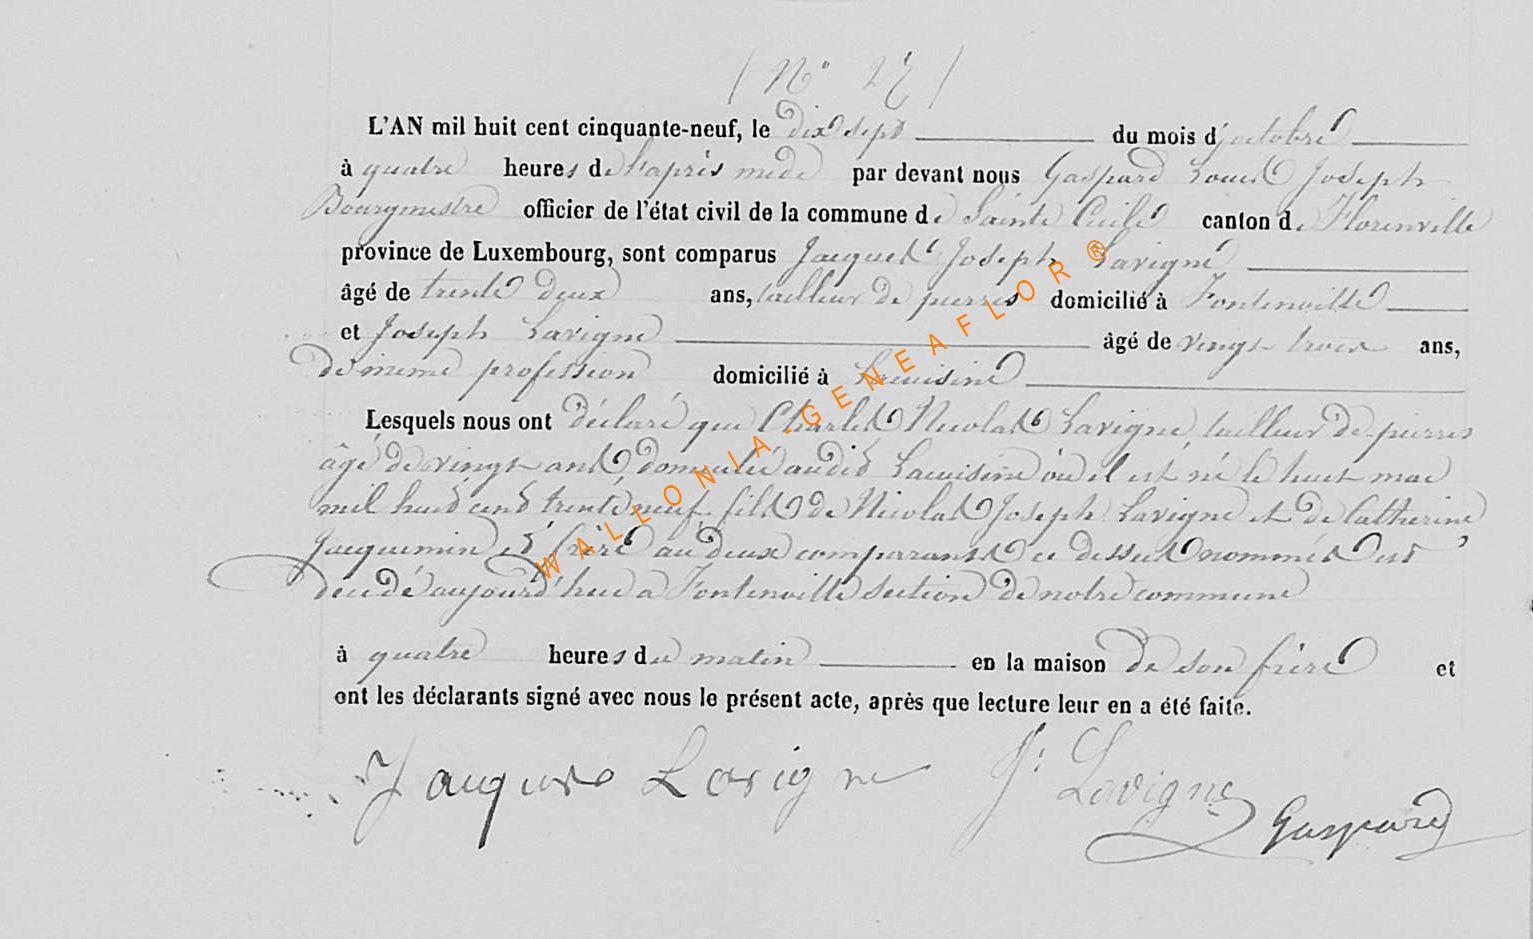 ( N° 27 )
L'AN mil huit cent cinquante-neuf, le dix sept du mois d'octobre
à quatre heures de l'après mede par devant nous Gaspard Louis Joseph
Bourgmestre officier de l'état civil de la commune de Sainte Cecile canton de Florenville
province de Luxembourg, sont comparus Jacques Joseph Lavigne
âgé de trente deux ans, tailleur de pierres domicilié à Fontenoille
et Joseph Lavigne âgé de vingt trois ans,
de meme profession domicilié à Lacuisine
Lesquels nous ont déclaré que Charles Nicolas Lavigne tailleur de pierres
âgé de vingt ans domicilié audit Lacuisine où il est né le huit mai
mil huit cent trente neuf fils de Nicolas Joseph Lavigne et de Catherine
Jacquemin et frère au deux comparants ci dessus nommés est
décédé aujourd'hui a Fontenoille section de notre commune
à quatre heures du matin en la maison de son frère et
ont les déclarants signé avec nous le présent acte, après que lecture leur en a été faite.
Jacques Lavigne J. Lavigne Gaspard
WALLONIA-GENEAFLOR ®